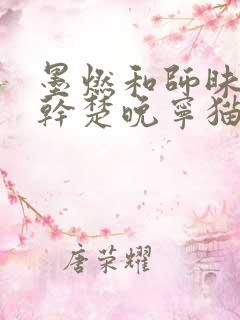 墨燃和師昧
幹楚晚寧猫
唐荣耀